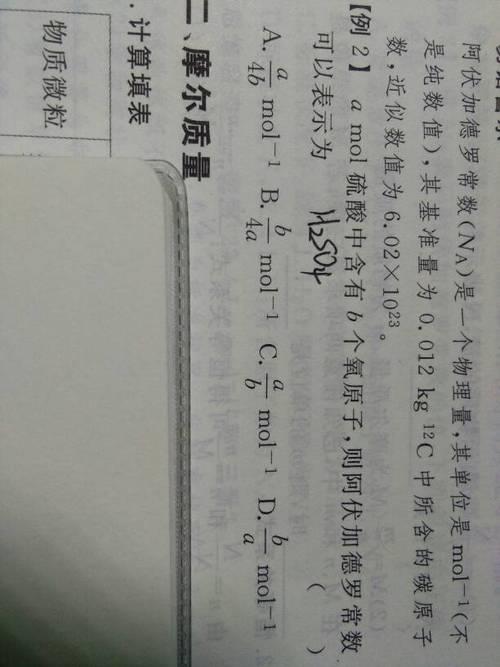 阿伏加德罗常数(N_A)是一个物理量,其单位是mol⁻¹(不
是纯数值),其基准量为0.012 kg ¹²C中所含的碳原子
数,近似数值为6.02×10²³。
【例2】 a mol硫酸中含有b个氧原子,则阿伏加德罗常数
可以表示为 ( )
H₂SO₄
A. a/4b mol⁻¹ B. b/4a mol⁻¹ C. a/b mol⁻¹ D. b/a mol⁻¹
二、摩尔质量
. 计算填表
物质微粒